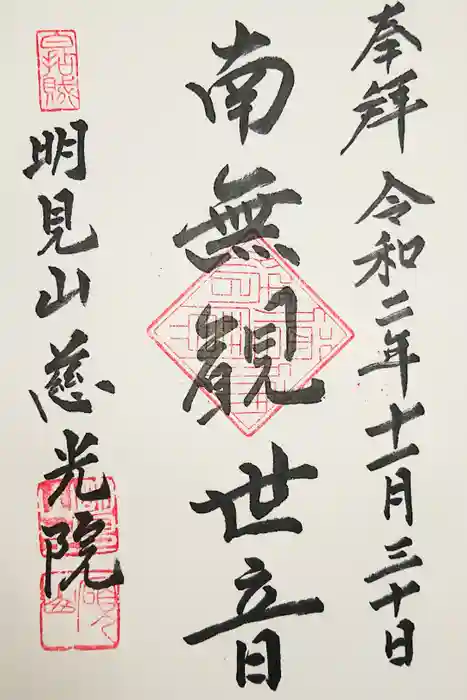 奉拜 令和二年十一月三十日
南無觀世音
明見山 慈光院